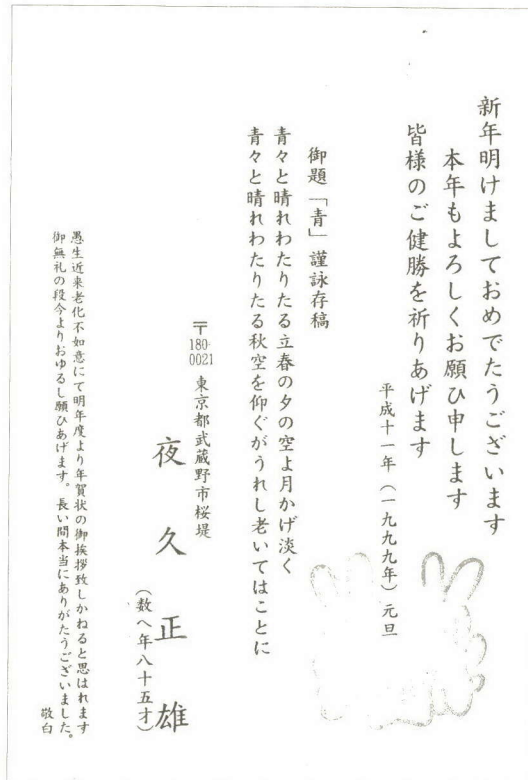 新年明けましておめでたうございます
本年もよろしくお願ひ申します
皆様のご健勝を祈りあげます
平成十一年（一九九九年）元旦
御題「青」謹詠存稿
青々と晴れわたりたる立春の夕の空よ月かげ淡く
青々と晴れわたりたる秋空を仰ぐがうれし老いてはことに
〒180-0021 東京都武蔵野市桜堤
夜久正雄
（数へ年八十五才）
愚生近来老化不如意にて明年度より年賀状の御挨拶致しかねると思はれます
御無礼の段今よりおゆるし願ひあげます。長い間本当にありがたうございました。
敬白